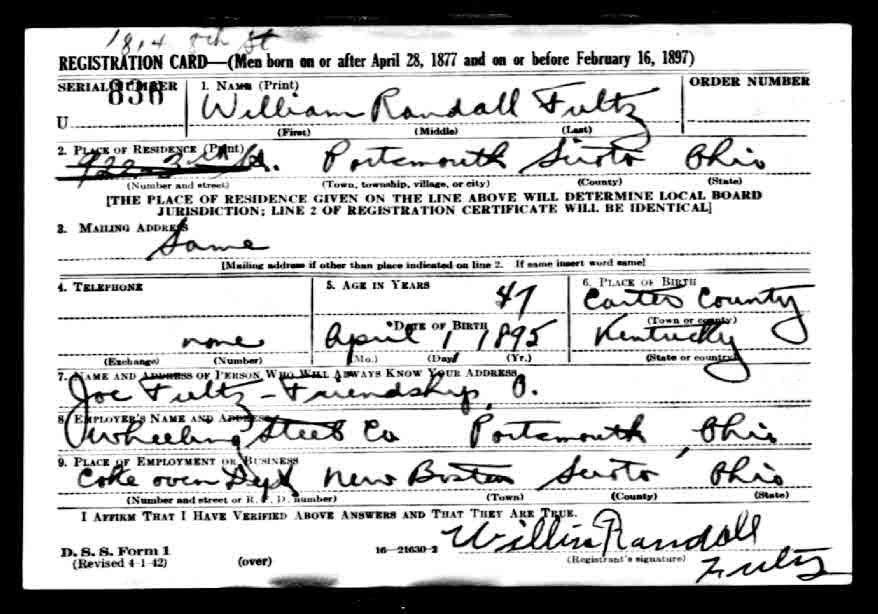 1814 8th St
REGISTRATION CARD—(Men born on or after April 28, 1877 and on or before February 16, 1897)
SERIAL NUMBER 1. NAME (Print) ORDER NUMBER
U 836 William Randall Fultz
(First) (Middle) (Last)
2. PLACE OF RESIDENCE (Print)
922 3rd St. Portsmouth Sioto Ohio
(Number and street) (Town, township, village, or city) (County) (State)
[THE PLACE OF RESIDENCE GIVEN ON THE LINE ABOVE WILL DETERMINE LOCAL BOARD
JURISDICTION; LINE 2 OF REGISTRATION CERTIFICATE WILL BE IDENTICAL]
3. MAILING ADDRESS
Same
[Mailing address if other than place indicated on line 2. If same insert word same]
4. TELEPHONE 5. AGE IN YEARS 6. PLACE OF BIRTH
47 Carter County
DATE OF BIRTH (Town or county)
none April 1 1895 Kentucky
(Exchange) (Number) (Mo.) (Day) (Yr.) (State or country)
7. NAME AND ADDRESS OF PERSON WHO WILL ALWAYS KNOW YOUR ADDRESS
Joe Fultz - Friendship, O.
8. EMPLOYER'S NAME AND ADDRESS
Wheeling Steel Co Portsmouth, Ohio
9. PLACE OF EMPLOYMENT OR BUSINESS
Coke oven Dept New Boston Sioto Ohio
(Number and street or R. F. D. number) (Town) (County) (State)
I AFFIRM THAT I HAVE VERIFIED ABOVE ANSWERS AND THAT THEY ARE TRUE.
Randall
D. S. S. Form 1 16—21630-2 (Registrant's signature)
(Revised 4-1-42) (over) Fultz